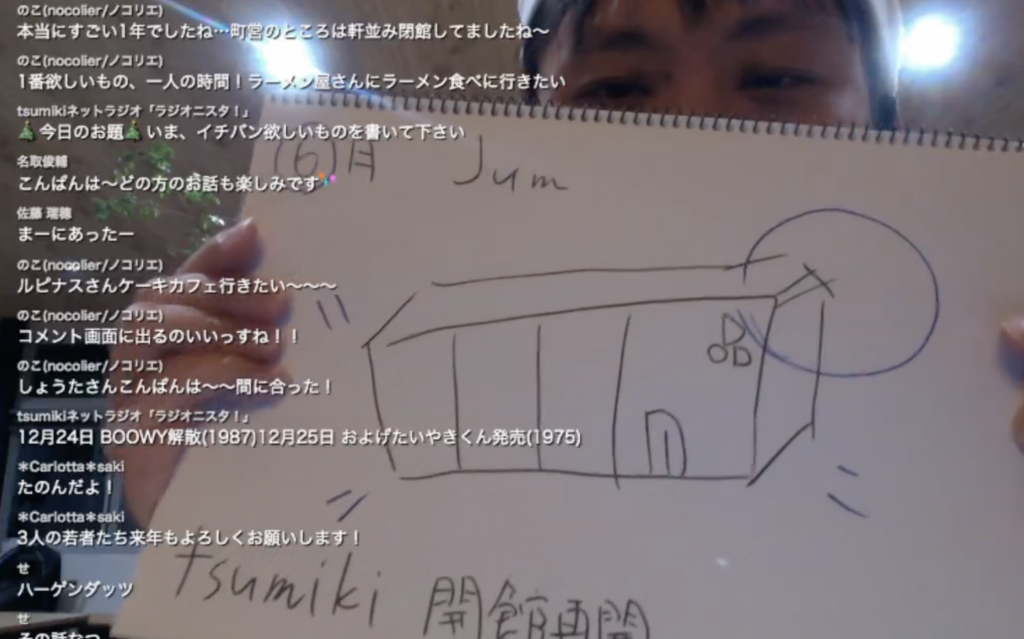 のこ(nocolier/ノコリエ)
本当にすごい1年でしたね…町営のところは軒並み閉館してましたね〜
のこ(nocolier/ノコリエ)
1番欲しいもの、一人の時間！ラーメン屋さんにラーメン食べに行きたい
tsumikiネットラジオ「ラジオニスタ！」
🎄今日のお題🎄いま、イチバン欲しいものを書いて下さい
名取俊輔
こんばんは〜どの方のお話も楽しみです
佐藤 瑞穂
まーにあったー
のこ(nocolier/ノコリエ)
ルピナスさんケーキカフェ行きたい〜〜〜
のこ(nocolier/ノコリエ)
コメント画面に出るのいいっすね！！
のこ(nocolier/ノコリエ)
しょうたさんこんばんは〜〜間に合った！
tsumikiネットラジオ「ラジオニスタ！」
12月24日 BOOWY解散(1987)12月25日 およげたいやきくん発売(1975)
＊Carlotta＊saki
たのんだよ！
＊Carlotta＊saki
3人の若者たち来年もよろしくお願いします！
せ
ハーゲンダッツ
せ
その話なつ
(6)月 Jum
tsumiki 開館再開